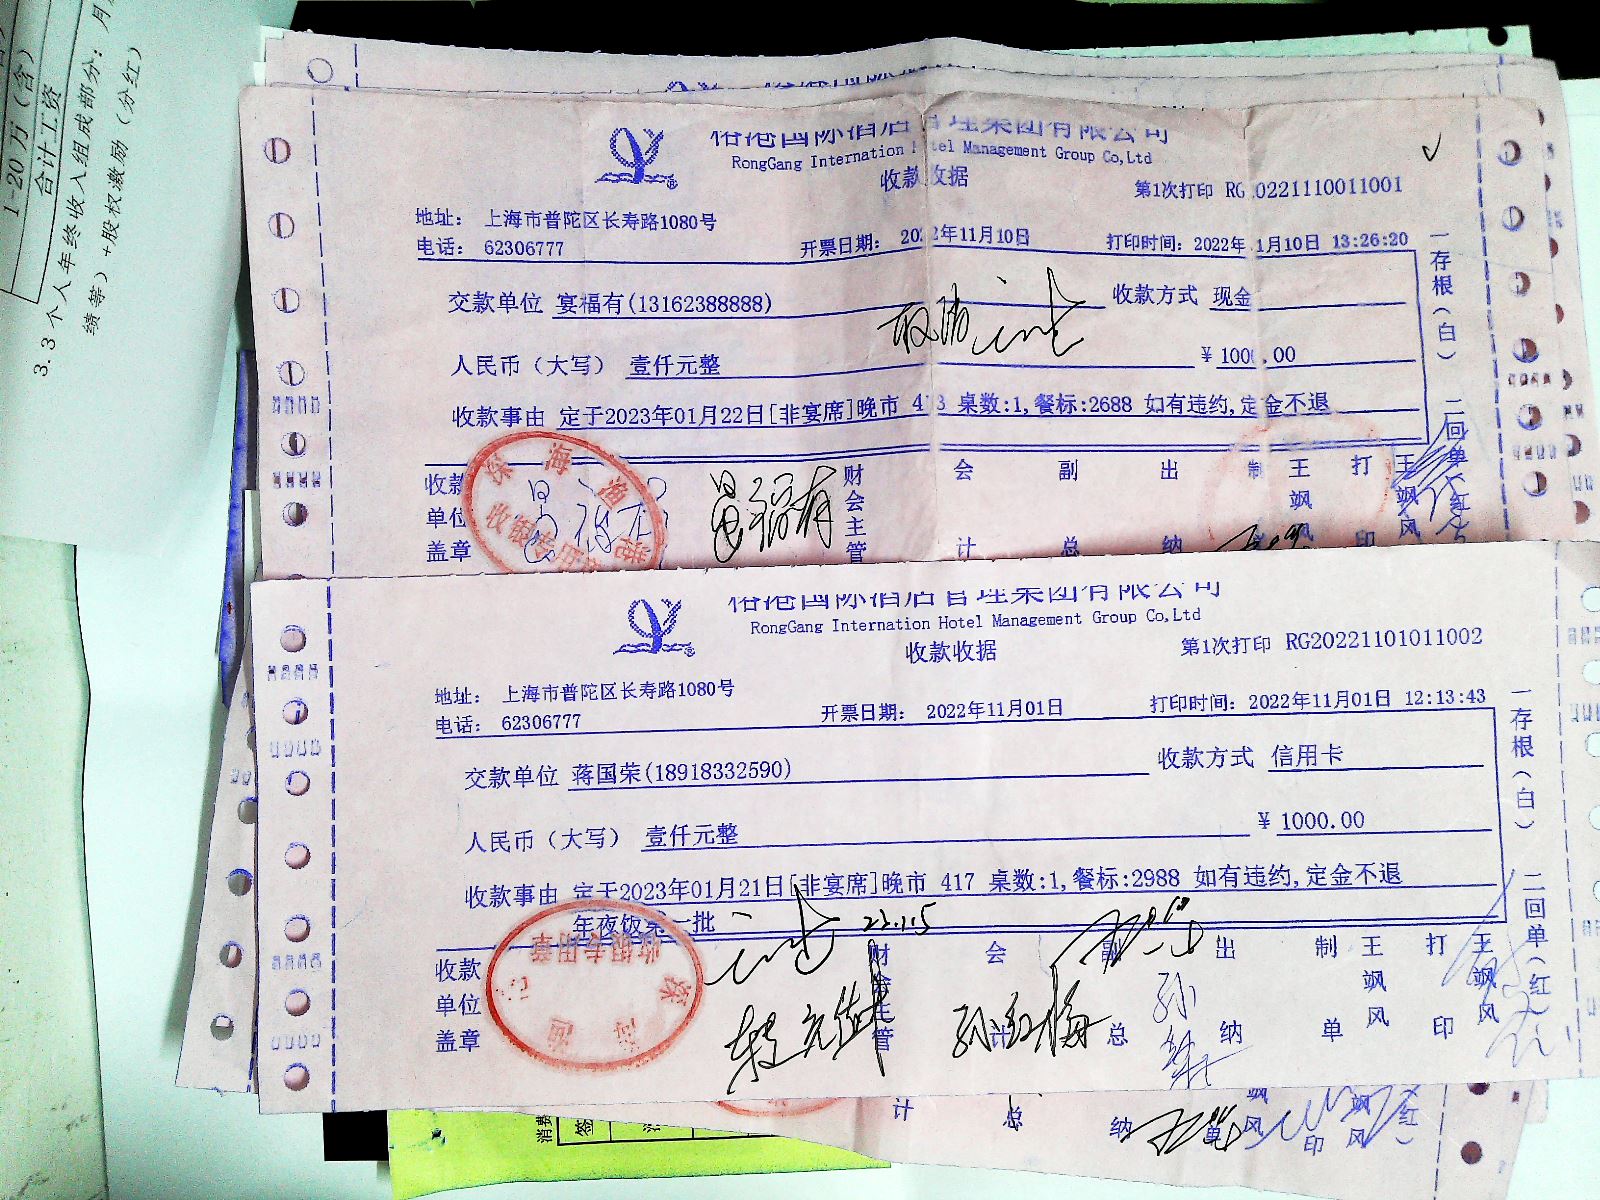 1-20万(含)
合计工资
3.3 个人年终收入组成部分：月
绩等）+股权激励（分红）
榕港国际酒店管理集团有限公司
RongGang Internation Hotel Management Group Co,Ltd
收款收据
第1次打印 RG20221110011001
地址： 上海市普陀区长寿路1080号
电话： 62306777
开票日期： 2022年11月10日
打印时间：2022年11月10日 13:26:20
交款单位 宴福有(13162388888)
收款方式 现金
人民币（大写） 壹仟元整
￥ 1000.00
收款事由 定于2023年01月22日[非宴席]晚市 413 桌数:1,餐标:2688 如有违约,定金不退
一存根（白） 二回单（红）
收款单位盖章
财会主管
会计
副总
出纳
制单
王飒风
打印
王飒风
榕港国际酒店管理集团有限公司
RongGang Internation Hotel Management Group Co,Ltd
收款收据
第1次打印 RG20221101011002
地址： 上海市普陀区长寿路1080号
电话： 62306777
开票日期： 2022年11月01日
打印时间：2022年11月01日 12:13:43
交款单位 蒋国荣(18918332590)
收款方式 信用卡
人民币（大写） 壹仟元整
￥ 1000.00
收款事由 定于2023年01月21日[非宴席]晚市 417 桌数:1,餐标:2988 如有违约,定金不退
年夜饭第一批
一存根（白） 二回单（红）
收款单位盖章
财会主管
会计
副总
出纳
制单
王飒风
打印
王飒风
孙红梅
收银专用章
计
总
纳
单
印